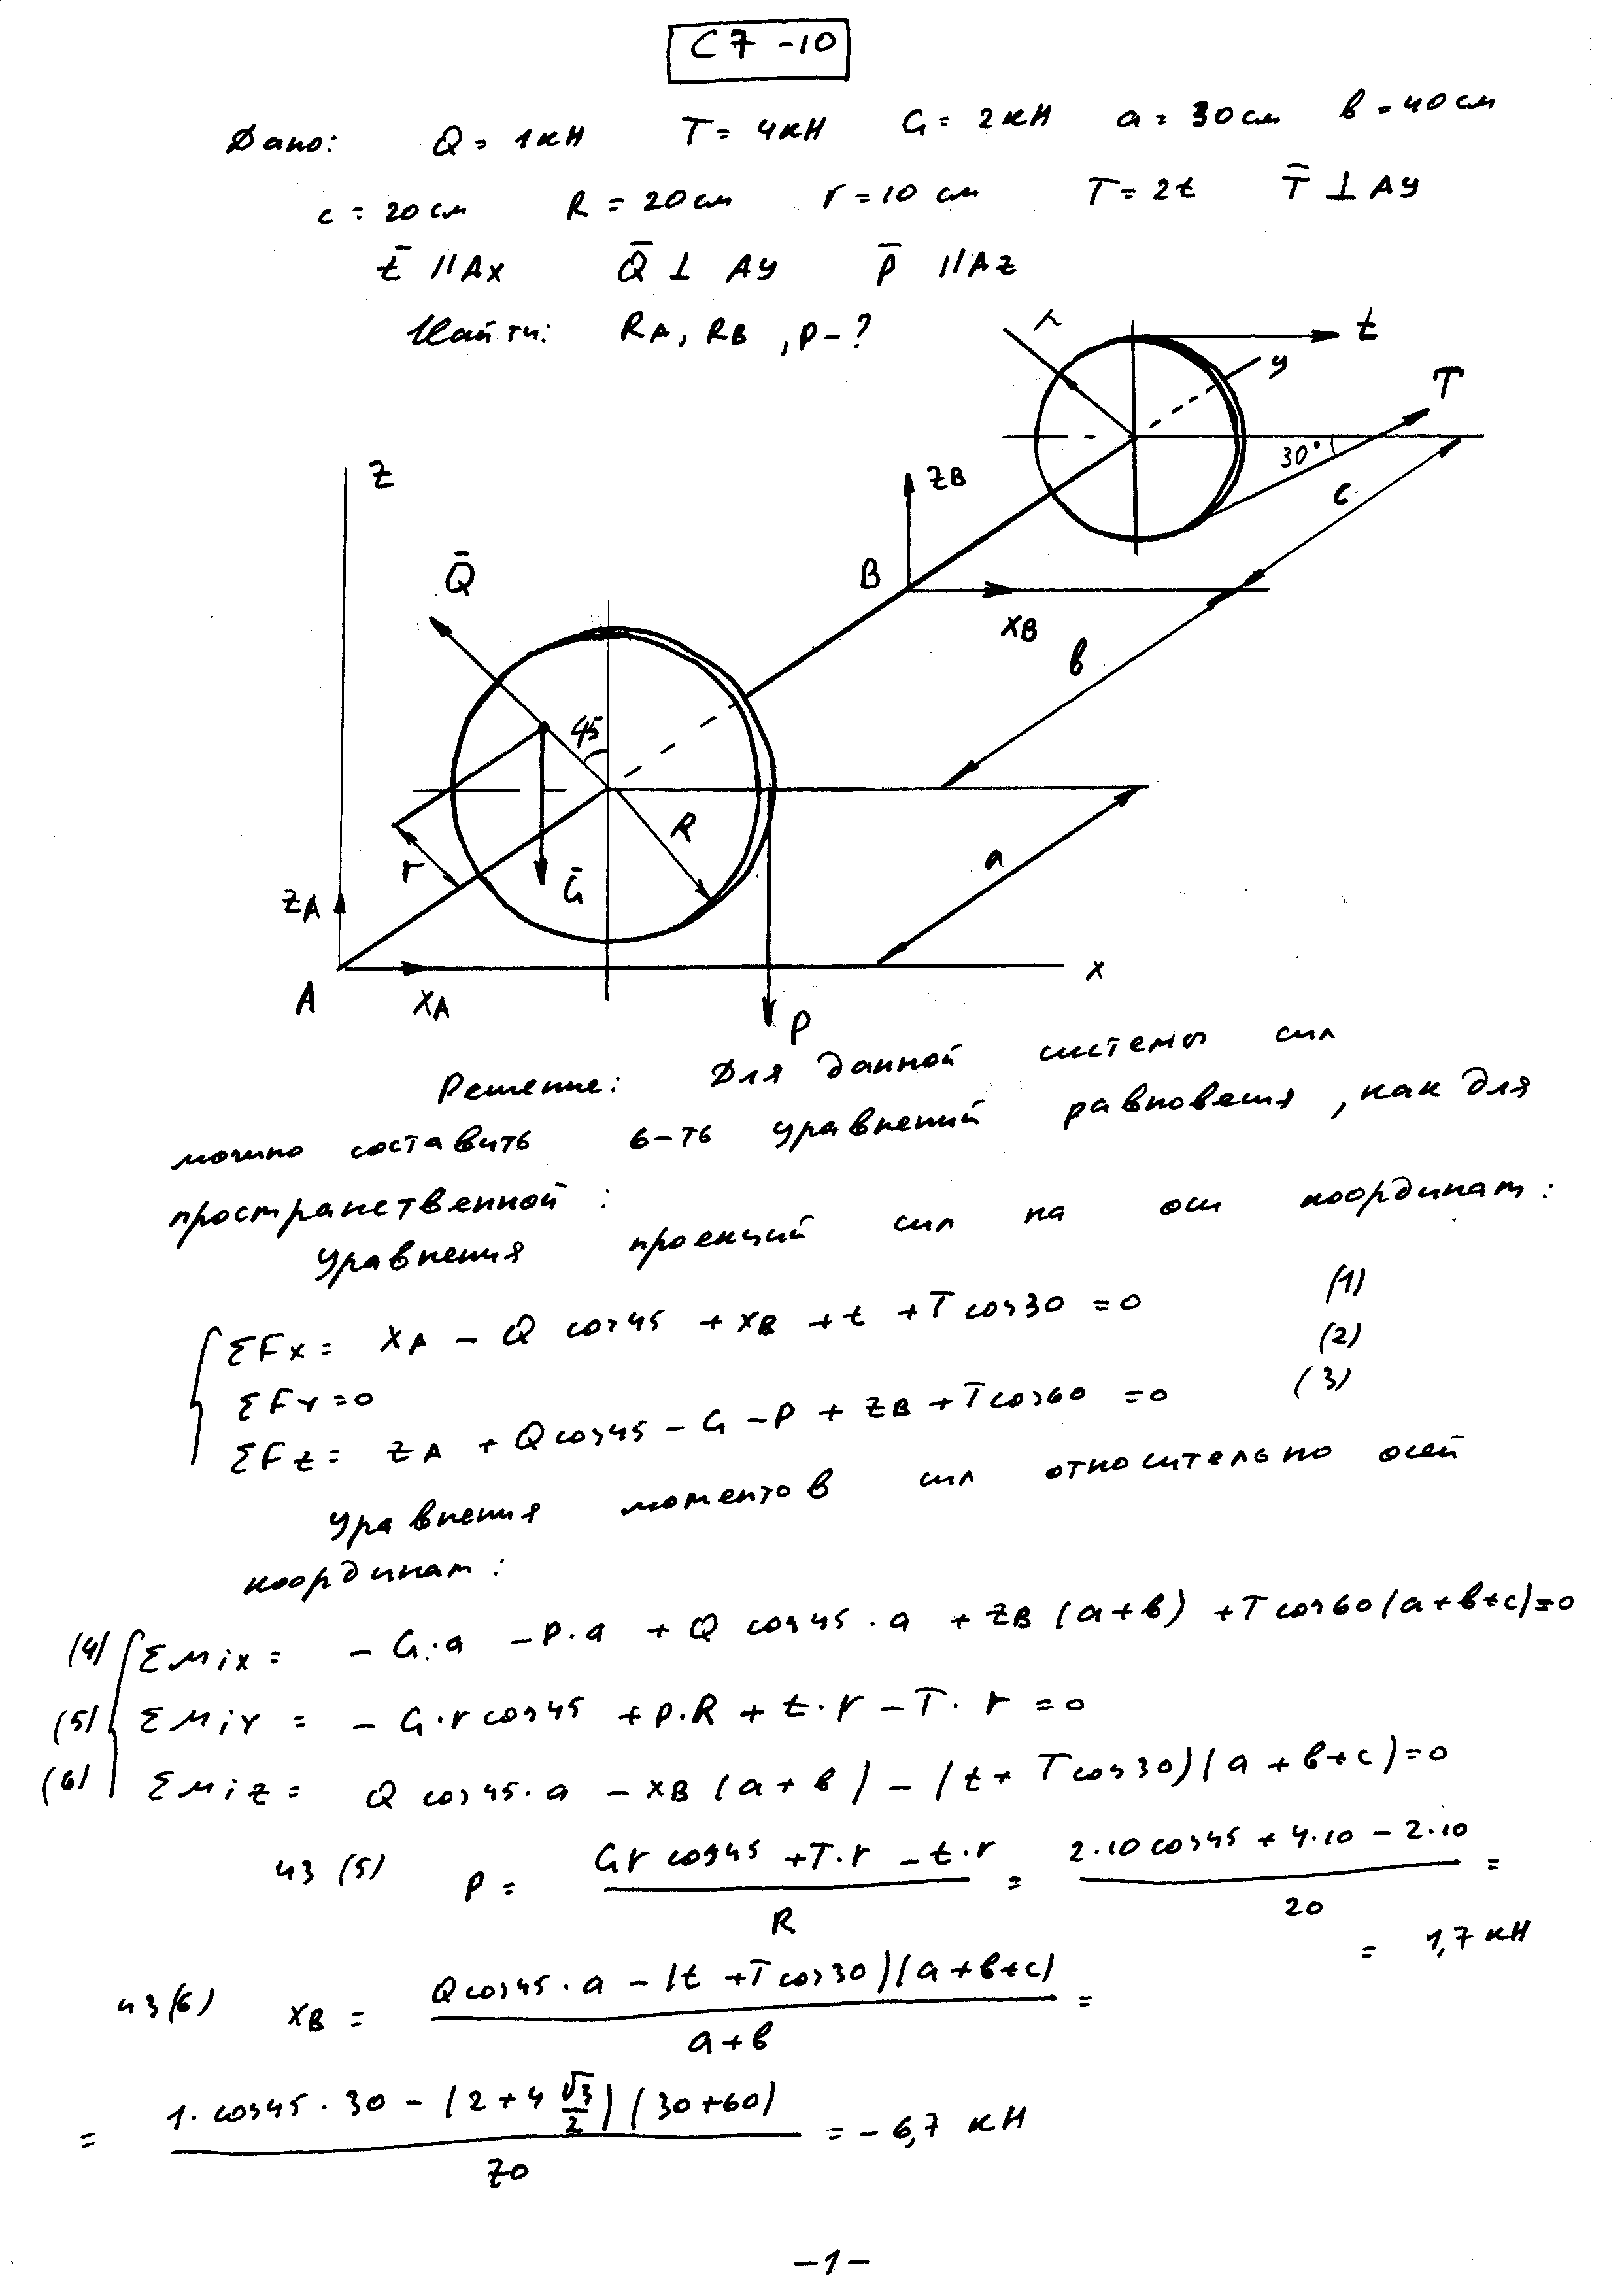 С7-10
Дано: Q = 1кН T = 4кН G = 2кН a = 30см в = 40см
c = 20см R = 20см r = 10 см T = 2t T̄ ⊥ Ay
t̄ // Ax Q̄ ⊥ Ay P̄ // Az
Найти: RA, RB, P-?
r t
y T
z zB 30°
c
Q̄ B
xB
в
45
R
r a
zA Ḡ
A xA x
P
Решение: Для данной системы сил
можно составить 6-ть уравнений равновесия, как для
пространственной:
Уравнения проекций сил на оси координат:
ΣFx = XA - Q cos45 + XB + t + T cos30 = 0 (1)
ΣFY = 0 (2)
ΣFz = zA + Q cos45 - G - P + zB + T cos60 = 0 (3)
Уравнения моментов сил относительно осей
координат:
(4) ΣMix = - G·a - P·a + Q cos45·a + zB (a+в) + T cos60 (a+в+c)=0
(5) ΣMiY = - G·r cos45 + P·R + t·r - T·r = 0
(6) ΣMiz = Q cos45·a - XB (a+в) - (t + T cos30)(a+в+c)=0
из (5) P = (Gr cos45 + T·r - t·r) / R = (2·10 cos45 + 4·10 - 2·10) / 20 =
= 1,7 кН
из (6) XB = (Q cos45·a - (t + T cos30)(a+в+c)) / (a+в) =
= (1·cos45·30 - (2+4 √3/2)(30+60)) / 70 = - 6,7 кН
-1-